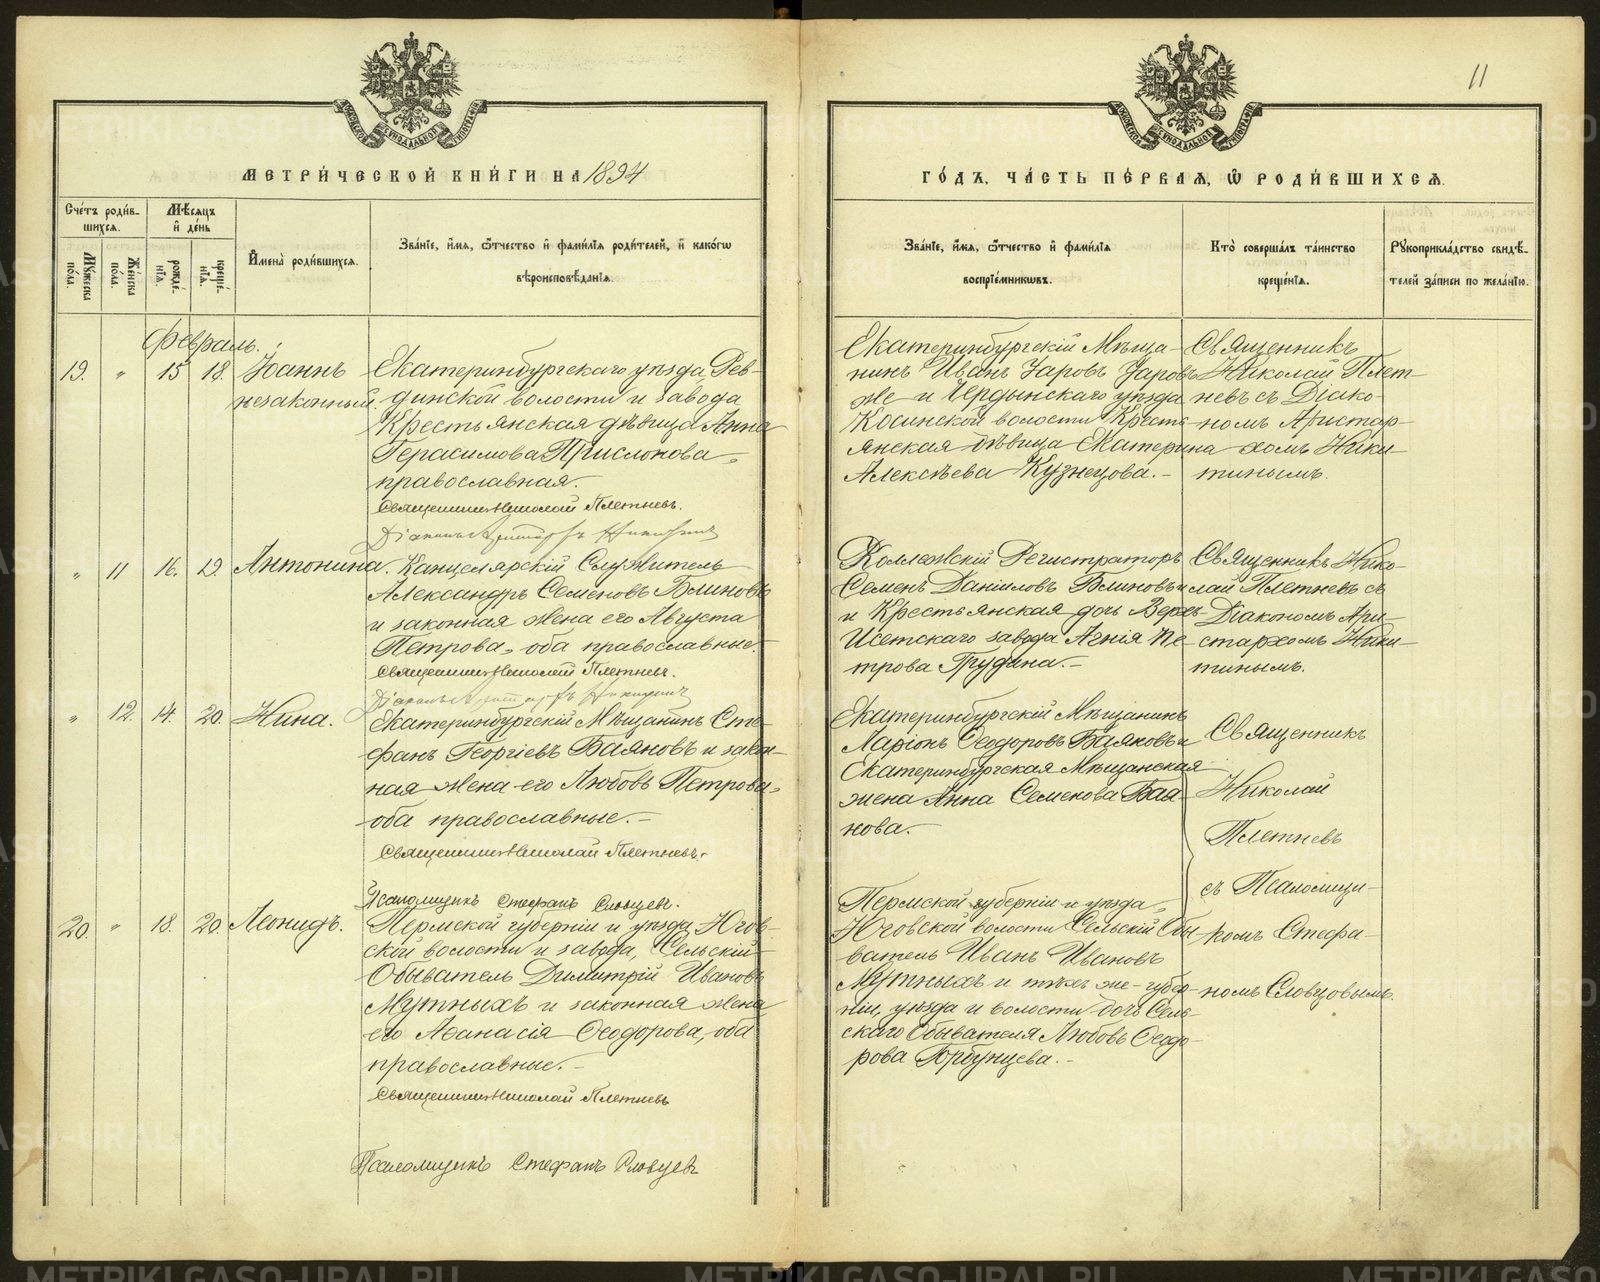 11
МЕТРИЧЕСКОЙ КНИГИ НА 1894
Счетъ родив-
шихся.
Мѣсяцъ
и день
Мужеска
пола.
Женска
пола.
рожде-
нія.
креще-
нія.
Имена родившихся.
Званіе, имя, отчество и фамилія родителей, и какого
вѣроисповѣданія.
Февраль.
19. " 15 18. Іоаннъ
незаконный.
Екатеринбургскаго уѣзда, Рев-
динской волости и завода
Крестьянская дѣвица Анна
Герасимова Прислонова,
православная.
Священникъ Николай Плетневъ.
Діаконъ Аристархъ Никитинъ
" 11 16. 19. Антонина.
Канцелярскій Служитель
Александръ Семеновъ Блиновъ
и законная жена его Августа
Петрова, оба православные.
Священникъ Николай Плетневъ.
Діаконъ Аристархъ Никитинъ
" 12. 14. 20. Нина.
Екатеринбургскій Мѣщанинъ Сте-
фанъ Георгіевъ Баяновъ и закон-
ная жена его Любовь Петрова,
оба православные.
Священникъ Николай Плетневъ.
Псаломщикъ Стефанъ Словцевъ.
20. " 18. 20. Леонидъ.
Пермской губерніи и уѣзда, Югов-
ской волости и завода, Сельскій
Обыватель Димитрій Ивановъ
Мутныхъ и законная жена
его Аѳанасія Ѳеодорова, оба
православные.
Священникъ Николай Плетневъ
Псаломщикъ Стефанъ Словцевъ
ГОДЪ, ЧАСТЬ ПЕРВАЯ, Ѡ РОДИВШИХСЯ.
Званіе, имя, отчество и фамилія
воспріемниковъ.
Кто совершалъ таинство
крещенія.
Рукоприкладство свидѣ-
телей записи по желанію.
Екатеринбургскій Мѣща-
нинъ Иванъ Уаровъ Уаровъ
же и Чердынскаго уѣзда
Косинской волости Кресть-
янская дѣвица Екатерина
Алексѣева Кузнецова.
Священникъ
Николай Плет-
невъ съ Діако-
номъ Аристар-
хомъ Ники-
тинымъ.
Коллежскій Регистраторъ
Семенъ Даніиловъ Блиновъ
и Крестьянская дочь Верхъ-
Исетскаго завода Агнія Пе-
трова Грудина.
Священникъ Нико-
лай Плетневъ съ
Діакономъ Ари-
стархомъ Ники-
тинымъ.
Екатеринбургскій Мѣщанинъ
Ларіонъ Ѳеодоровъ Баяновъ и
Екатеринбургская Мѣщанская
жена Анна Семенова Бая-
нова.
Священникъ
Николай
Плетневъ
съ Псаломщи-
комъ Стефа-
номъ Словцовымъ.
Пермской губерніи и уѣзда,
Юговской волости Сельскій Обы-
ватель Иванъ Ивановъ
Мутныхъ и тѣхъ же губер-
ніи, уѣзда и волости дочь Сель-
скаго Обывателя Любовь Ѳеодо-
рова Горбунцева.
METRIKI.GASO-URAL.RU